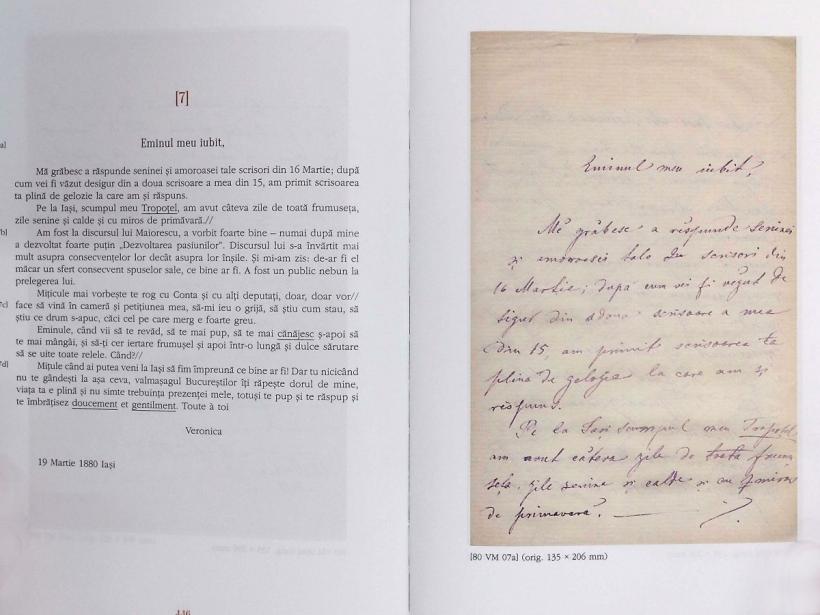 [7]
Eminul meu iubit,
a]
Mă grăbesc a răspunde seninei și amoroasei tale scrisori din 16 Martie; după
cum vei fi văzut desigur din a doua scrisoare a mea din 15, am primit scrisoarea
ta plină de gelozie la care am și răspuns.
Pe la Iași, scumpul meu Tropoțel, am avut câteva zile de toată frumusețea,
zile senine și calde și cu miros de primăvară.//
b]
Am fost la discursul lui Maiorescu, a vorbit foarte bine – numai după mine
a dezvoltat foarte puțin „Dezvoltarea pasiunilor”. Discursul lui s-a învârtit mai
mult asupra consecvențelor lor decât asupra lor înșile. Și mi-am zis: de-ar fi el
măcar un sfert consecvent spuselor sale, ce bine ar fi. A fost un public nebun la
prelegerea lui.
Mițicule mai vorbește te rog cu Conta și cu alți deputați, doar, doar vor//
c]
face să vină în cameră și petițiunea mea, să-mi ieu o grijă, să știu cum stau, să
știu ce drum s-apuc, căci cel pe care merg e foarte greu.
Eminule, când vii să te revăd, să te mai pup, să te mai cănăjesc ș-apoi să
te mai mângâi, și să-ți cer iertare frumușel și apoi într-o lungă și dulce sărutare
să se uite toate relele. Când?//
d]
Mițule când ai putea veni la Iași să fim împreună ce bine ar fi! Dar tu nicicând
nu te gândești la așa ceva, valmașagul Bucureștilor îți răpește dorul de mine,
viața ta e plină și nu simte trebuința prezenței mele, totuși te pup și te răspup și
te îmbrățișez doucement et gentilment. Toute à toi
Veronica
19 Martie 1880 Iași
Eminul meu iubit,
Mĕ grăbesc a rĕspunde seninei
și amoroasei tale scrisori din
16 Martie; după cum vei fi vĕzut de
sigur din adoua scrisoare a mea
din 15, am primit scrisoarea ta
plină de gelozia la care am și
rĕspuns.
Pe la Iași scumpul meu Tropoțel
am avut cătева zile de toată frumu
seța, zile senine și calde și cu miros
de primavară.
[80 VM 07a] (orig. 135 × 206 mm)